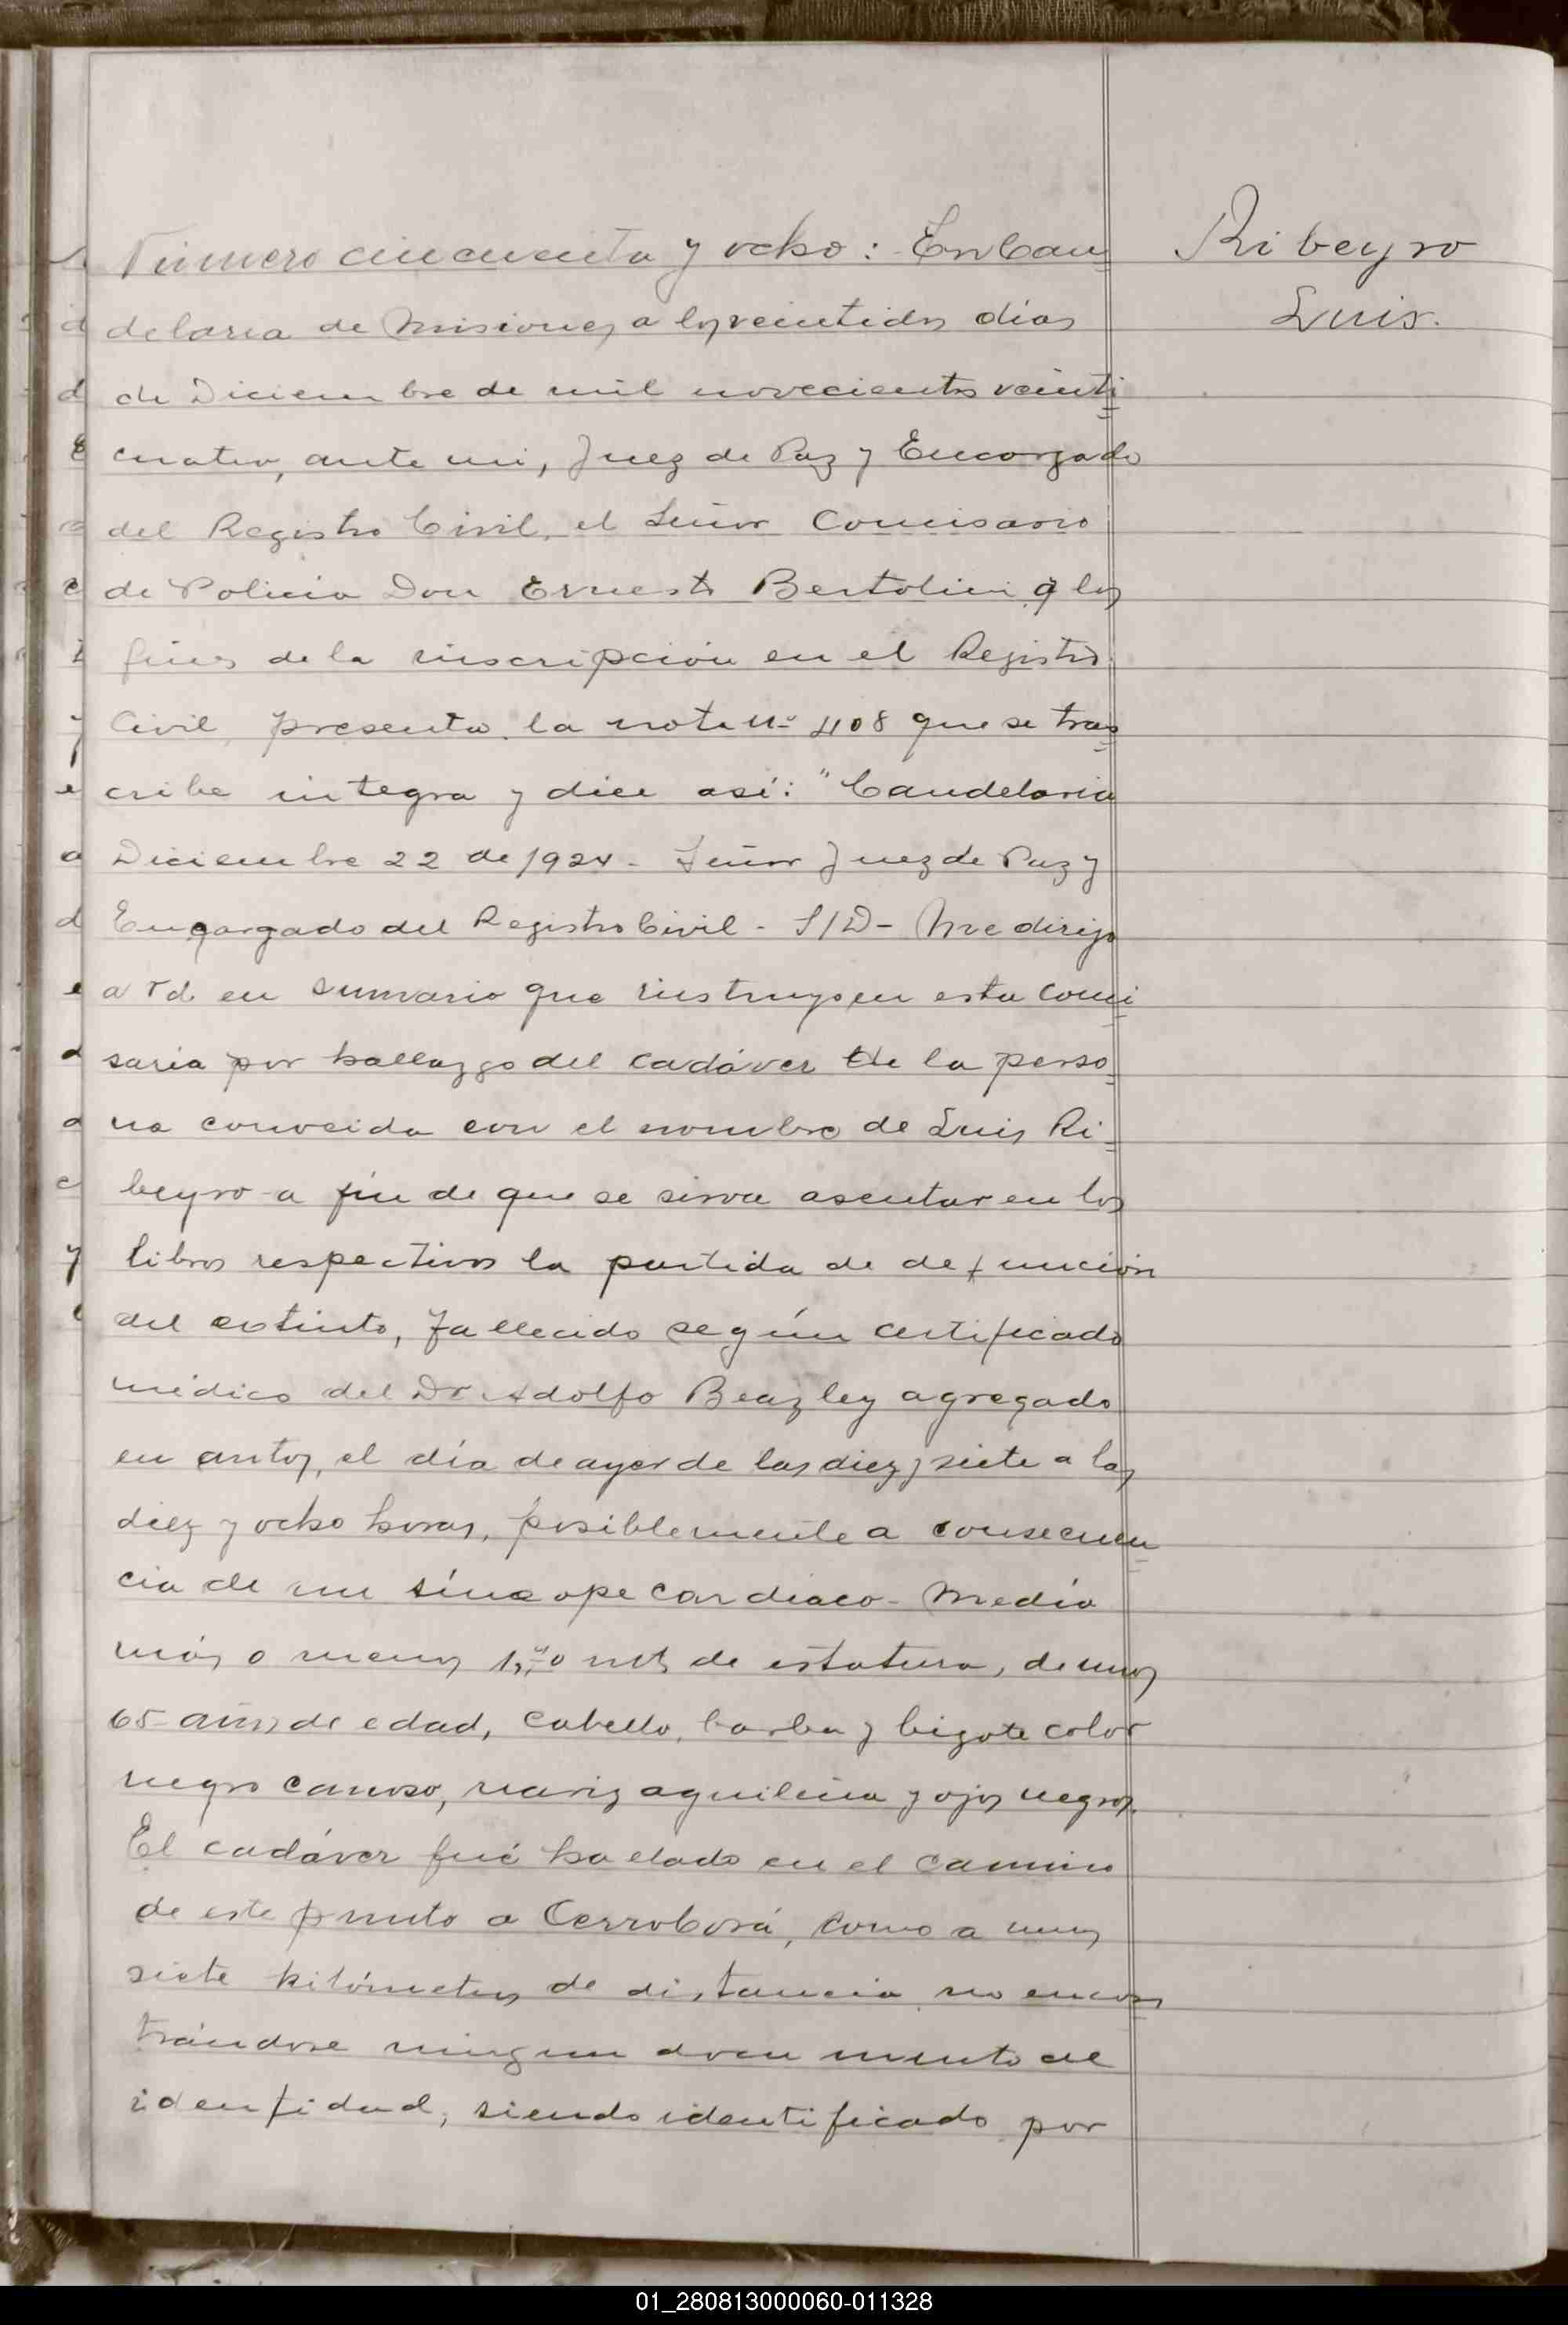 Número cincuenta y ocho: En Can
Ribeyro
delaria de Misiones a los veintidos días
Luis.
de Diciembre de mil novecientos veinti
cuatro, ante mi, Juez de Paz y Encargado
del Registro Civil, el Señor Comisario
de Policia Don Ernesto Bertolini a los
fines de la inscripción en el Registro
Civil, presenta la nota Nº 408 que se tras
cribe integra y dice así: "Candelaria
Diciembre 22 de 1924 - Señor Juez de Paz y
Encargado del Registro Civil - S/D - Me dirijo
a Vd. en sumario que instruyo en esta comi
saria por hallazgo del cadáver de la perso
na conocida con el nombre de Luis Ri
beyro a fin de que se sirva asentar en los
libros respectivos la partida de defunción
del extinto, fallecido según certificado
médico del Dr. Adolfo Beazley agregado
en autos, el día de ayer de las diez y siete a las
diez y ocho horas, posiblemente a consecuen
cia de un síncope cardiaco - Medía
más o menos mts de estatura, de unos
65 años de edad, cabello, barba y bigote color
negro canoso, nariz aguileña y ojos negros.
El cadáver fué hallado en el camino
de este punto a Cerro Corá, como a unos
siete kilómetros de distancia no encon
trándose ningun documento de
identidad, siendo identificado por
01_280813000060-011328